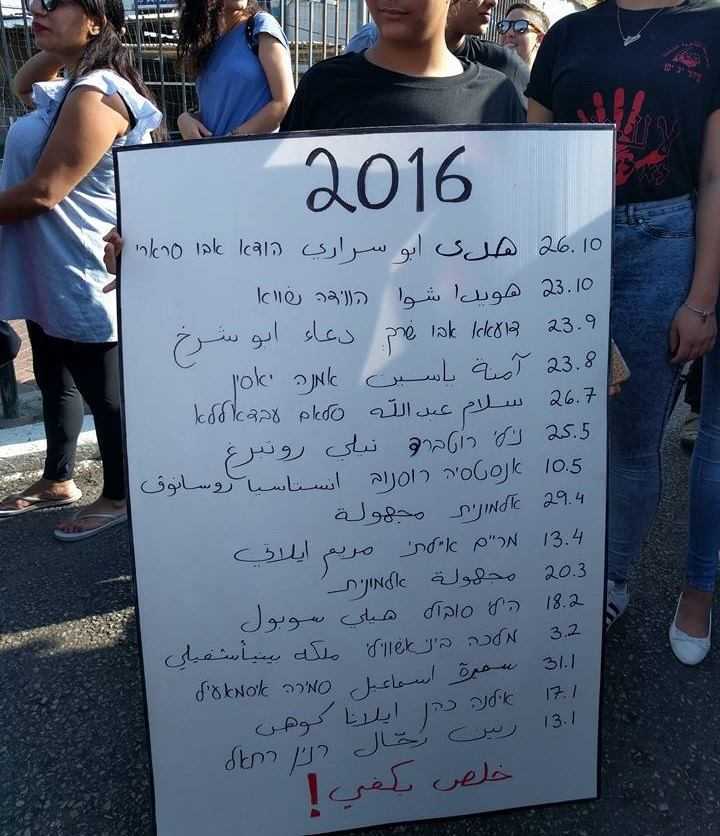 2016
26.10 هدى ابو سراري הודא אבו סרארי
23.10 هويدا شوا הווידה שווא
23.9 דועאא אבו שרח دعاء ابو شرخ
23.8 آمنة ياسين אמנה יאסין
26.7 سلام عبد الله סלאם עבדאללא
25.5 נילי רוטברג نيلي روتبرغ
10.5 אנסטסיה רוסנוב انستاسيا روسانوف
29.4 אלמונית مجهولة
13.4 מרים אילתי مريم ايلاتي
20.3 مجهولة אלמונית
18.2 הילי סובול هيلي سوبول
3.2 מלכה בינאשווילי ملكه بينأشفيلي
31.1 سميرة اسماعيل סמירה אסמאעיל
17.1 אילנה כהן ايلانا كوهن
13.1 رنين رحّال רנין רחאל
خلص بكفي!